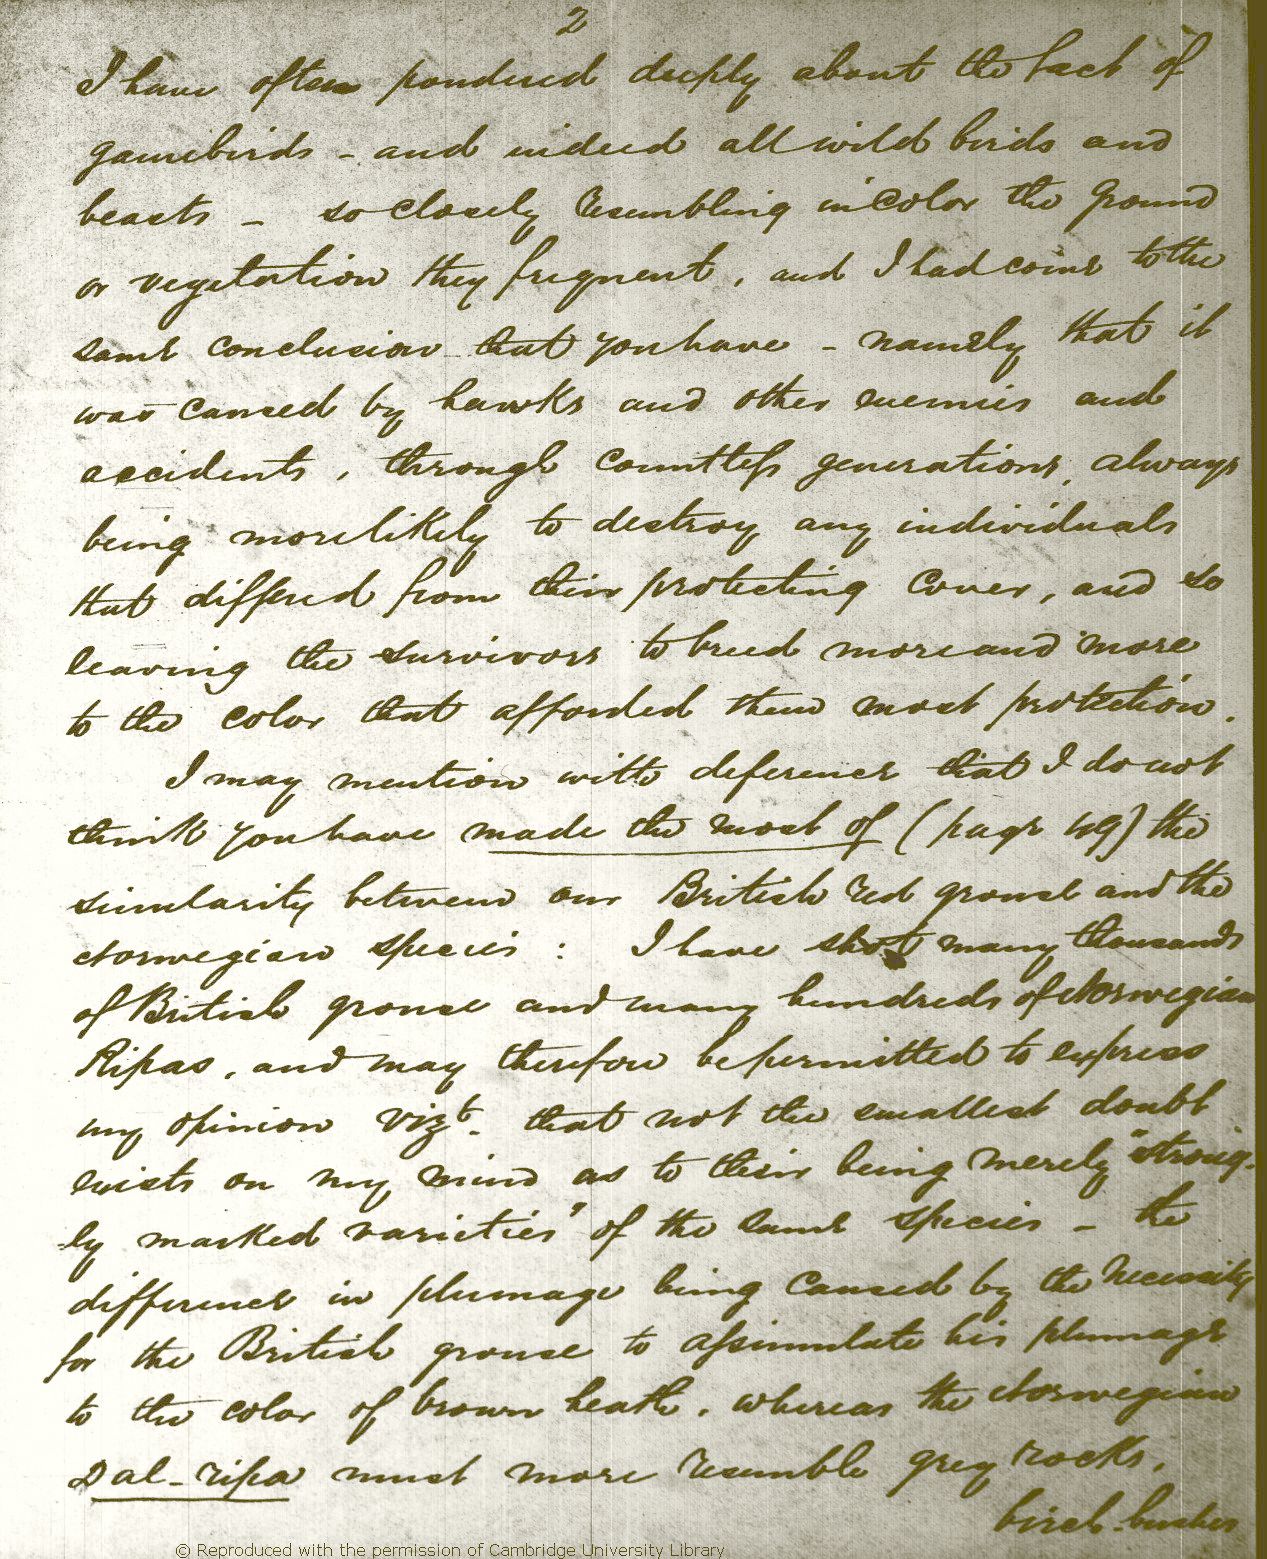 2
I have often pondered deeply about the fact of
gamebirds - and indeed all wild birds and
beasts - so closely resembling in color the ground
or vegetation they frequent, and I had come to the
same conclusion that you have - namely that it
was caused by hawks and other enemies and
accidents, through countless generations, always
being more likely to destroy any individuals
that differed from their protecting cover, and so
leaving the survivors to breed more and more
to the color that afforded them most protection.
I may mention with deference that I do not
think you have made the most of (page 49) the
similarity between our British red grouse and the
Norwegian species: I have shot many thousands
of British grouse and many hundreds of Norwegian
Ripas, and may therefore be permitted to express
my opinion vizt. that not the smallest doubt
exists on my mind as to their being merely "strong-
ly marked varieties" of the same species - the
difference in plumage being caused by the necessity
for the British grouse to assimulate his plumage
to the color of brown heath, whereas the Norwegian
Dal-ripa must more resemble grey rocks,
birch-bushes
© Reproduced with the permission of Cambridge University Library